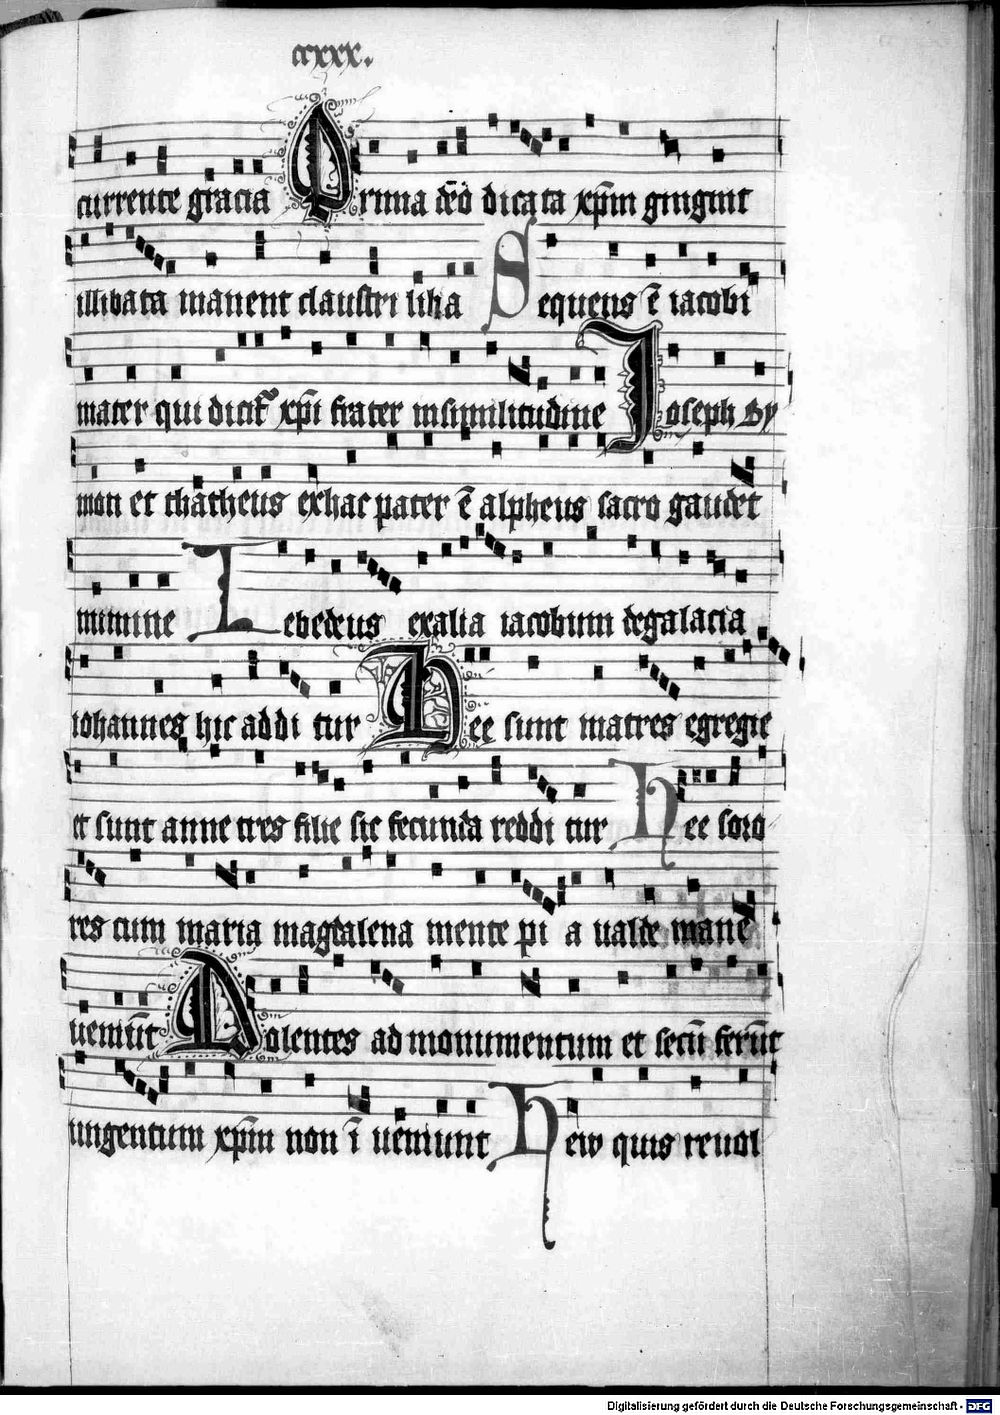 ccxxx.
currente gracia Prima dēo dicata xp̄m gingnit
illibata manent claustri lilia Sequens ē iacobi
mater qui dicit᷑ xp̄i frater insimilitudine Joseph Sy
mon et thatheus exhac pater ē alpheus sacro gaudet
numine Zebedeus exalia iacobum degalacia
iohannes hic addi tur Hee sunt matres egregie
et sunt anne tres filie sic fecunda reddi tur Hee soro
res cum maria magdalena mente pi a ualde mane
ueniūt Dolentes ad monumentum et secū ferūt
ungentum xp̄m non ī ueniunt Hew quis reuol
Digitalisierung gefördert durch die Deutsche Forschungsgemeinschaft - DFG